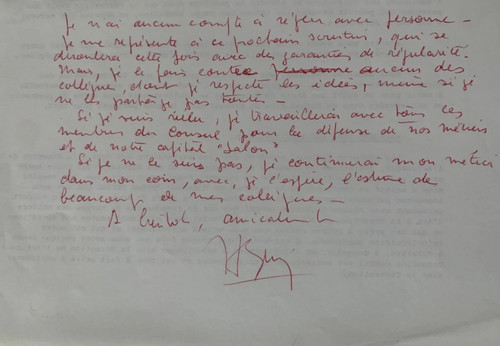 Je n'ai aucun compte à régler avec personne -
Je me représente à ce prochain scrutin, qui se
déroulera cette fois avec des garanties de régularité.
Mais, je le fais contre personne aucun des
collègues, dont je respecte les idées, même si je
ne les partage pas toutes -
Si je suis élu, je travaillerai avec tous les
membres du Conseil pour la défense de nos métiers
et de notre capital "Salon"
Si je ne le suis pas, je continuerai mon métier
dans mon coin, avec, je l'espère, l'estime de
beaucoup de mes collègues -
A bientôt, amicalement